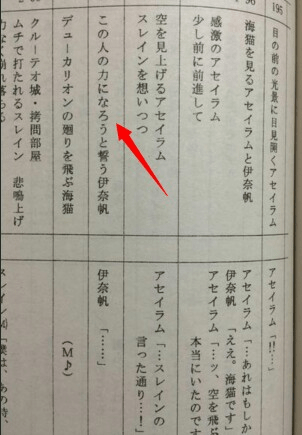 196
目の前の光景に目見開くアセイラム
海猫を見るアセイラムと伊奈帆
感激のアセイラム
少し前に前進して
空を見上げるアセイラム
スレインを想いつつ
この人の力になろうと誓う伊奈帆
デューカリオンの廻りを飛ぶ海猫
クルーテオ城・拷問部屋
ムチで打たれるスレイン　悲鳴上げ
アセイラム「!!…」
アセイラム「…あれはもしか
伊奈帆　「ええ。海猫です」
アセイラム「…ッ、空を飛ぶ
本当にいたのです
アセイラム「…スレインの
言った通り…！」
伊奈帆　「……」
（M♪）
スレイン(M)「僕は、あの時、